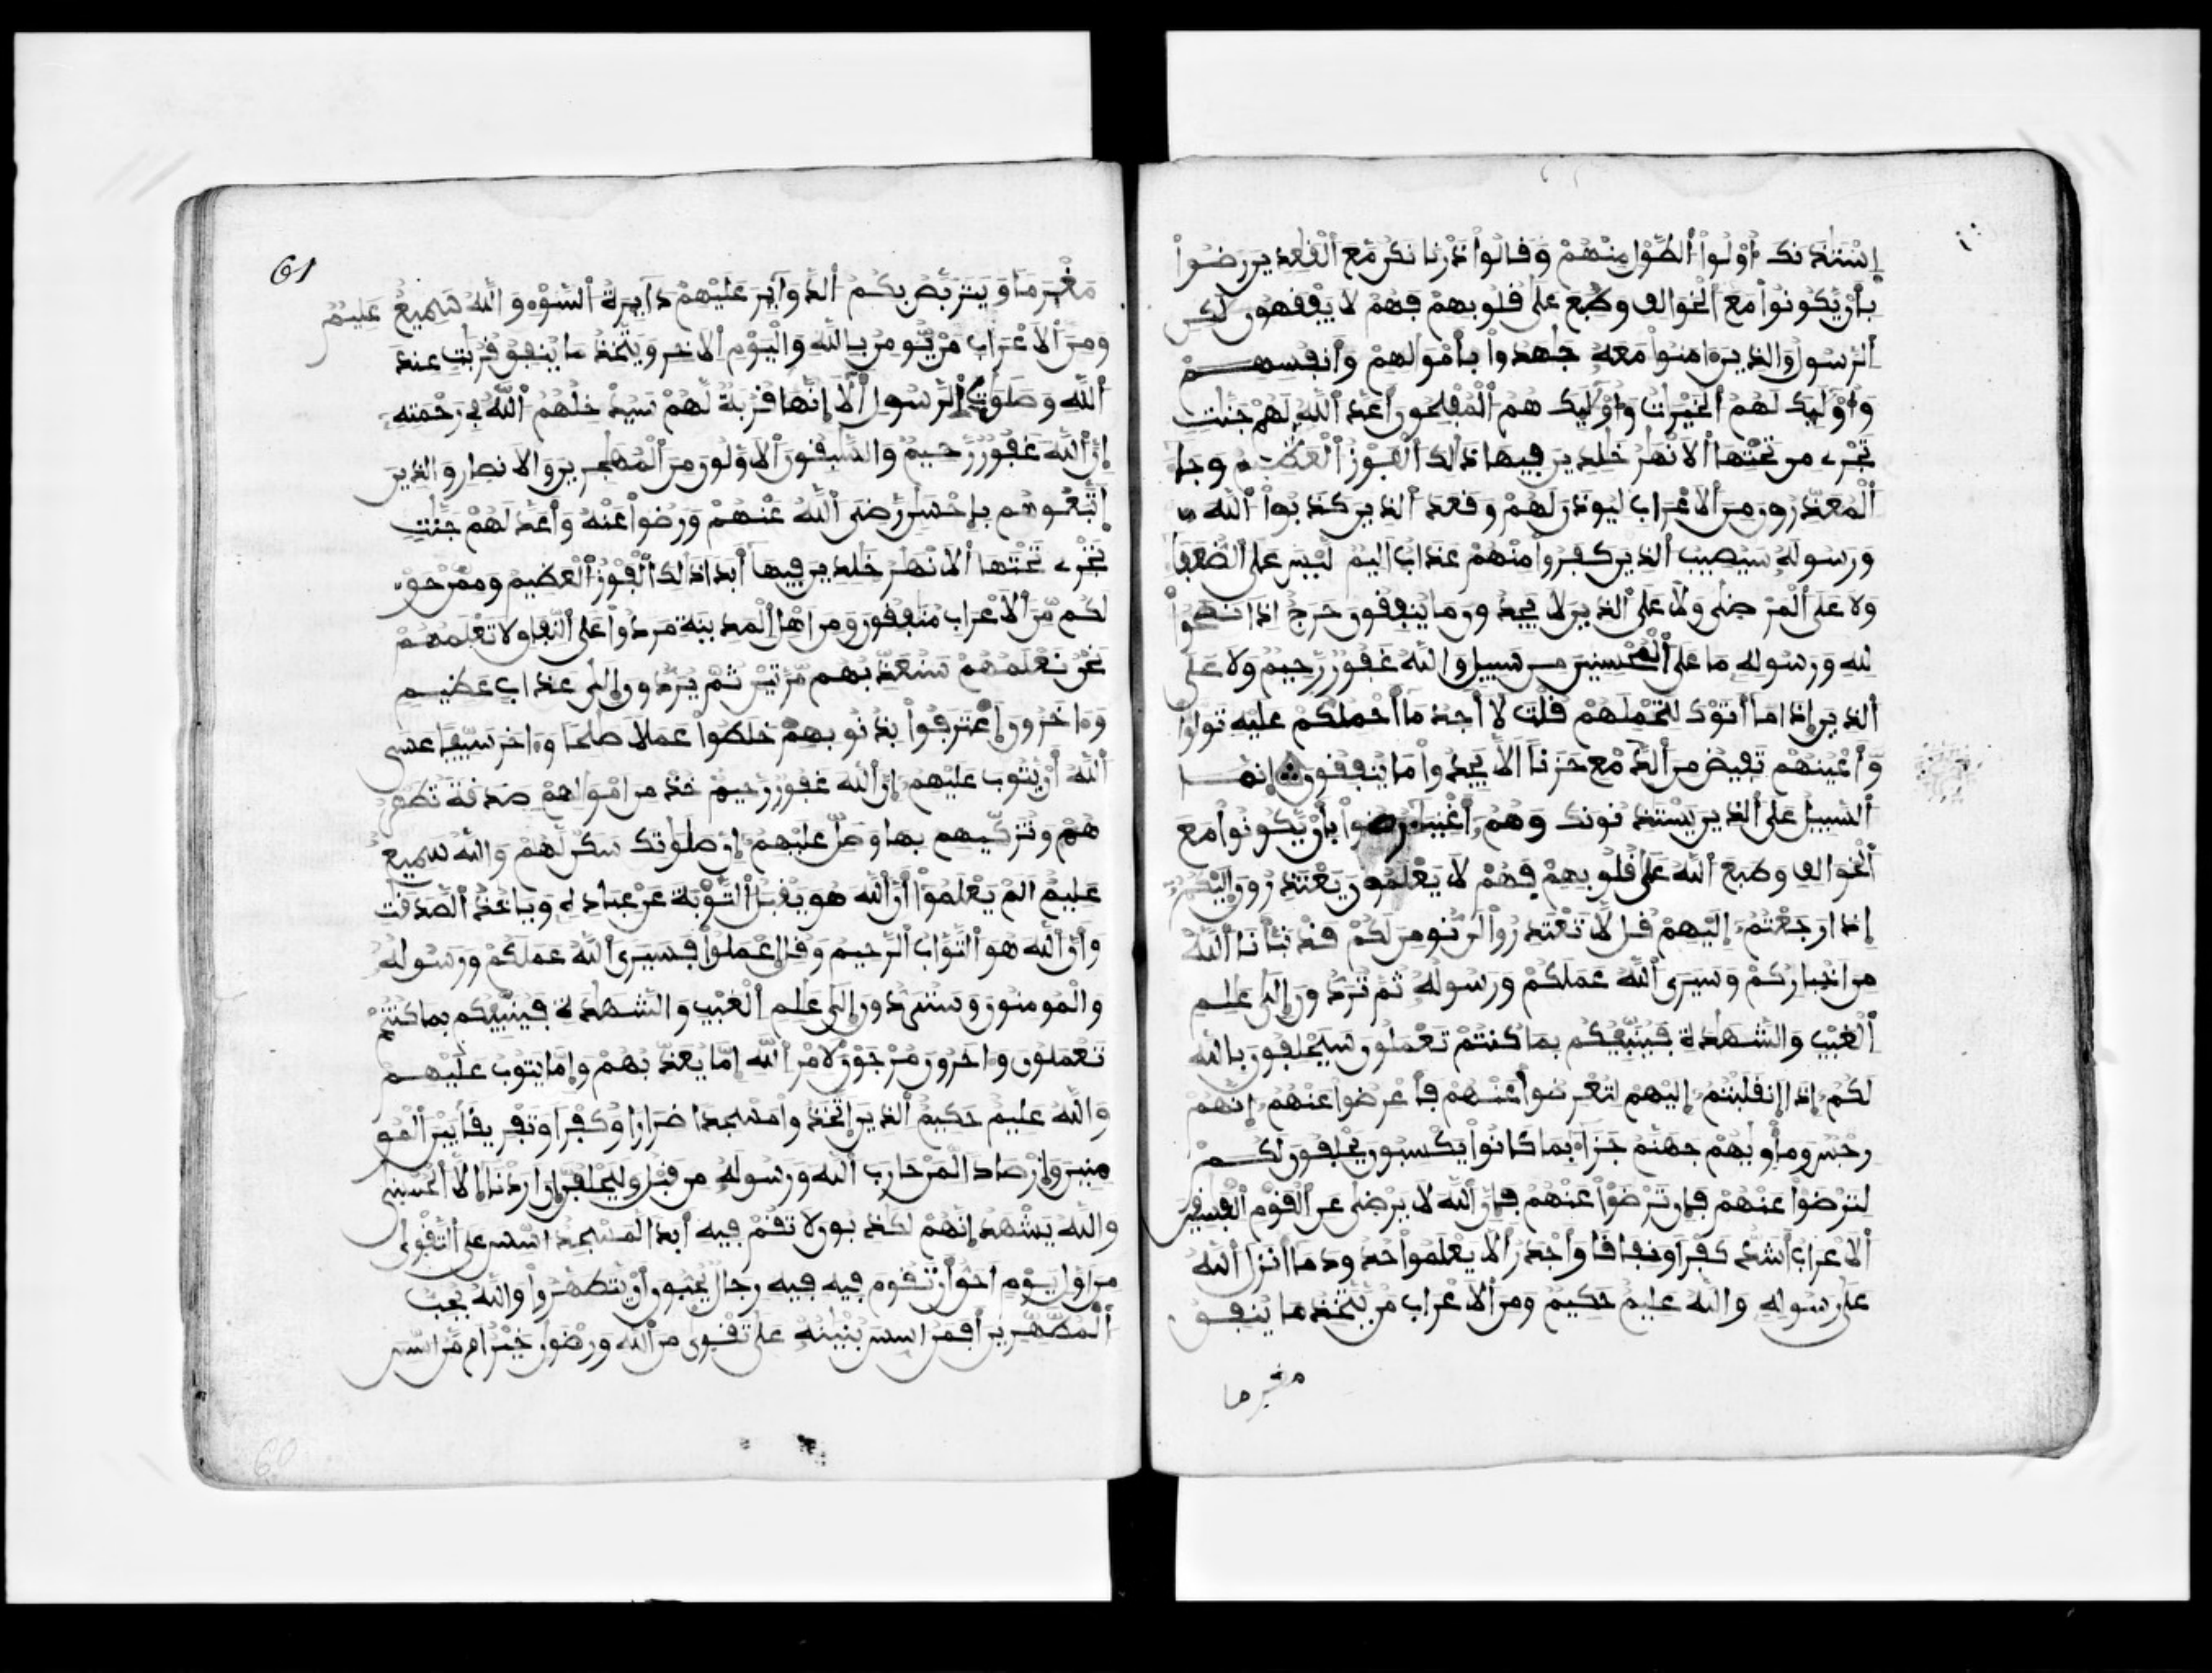 إستئذنك أولوا الطول منهم وقالوا ذرنا نكن مع القعدين رضوا
بأن يكونوا مع الخوالف وطبع على قلوبهم فهم لا يفقهون لكن
الرسول والذين ءامنوا معه جهدوا بأموالهم وأنفسهم
وأوليك لهم الخيرت وأوليك هم المفلحون أعد الله لهم جنت
تجرى من تحتها الانهر خلدين فيها ذلك الفوز العظيم وجا
المعذرون من الاعراب ليوذن لهم وقعد الذين كذبوا الله
ورسوله سيصيب الذين كفروا منهم عذاب اليم ليس على الضعفا
ولا على المرضى ولا على الذين لا يجدون ما ينفقون حرج اذا نصحوا
لله ورسوله ما على المحسنين من سبيل والله غفور رحيم ولا على
الذين إذا ما أتوك لتحملهم قلت لا أجد ما أحملكم عليه تولوا
وأعينهم تفيض من الدمع حزنا الا يجدوا ما ينفقون إنما
السبيل على الذين يستئذنونك وهم أغنيا رضوا بأن يكونوا مع
الخوالف وطبع الله على قلوبهم فهم لا يعلمون يعتذرون إليكم
إذا رجعتم إليهم قل لا تعتذروا لن نومن لكم قد نبأنا الله
من اخباركم وسيرى الله عملكم ورسوله ثم تردون إلى علم
الغيب والشهدة فينبئكم بما كنتم تعملون سيحلفون بالله
لكم إذا إنقلبتم إليهم لتعرضوا عنهم فأعرضوا عنهم إنهم
رجس ومأويهم جهنم جزاء بما كانوا يكسبون يحلفون لكم
لترضوا عنهم فإن ترضوا عنهم فإن الله لا يرضى عن القوم الفسقين
ألاعراب أشد كفرا ونفاقا وأجدر ألا يعلموا حدود ما أنزل الله
على رسوله والله عليم حكيم ومن ألاعراب من يتخذ ما ينفق
مغرما
61
مغرما ويتربص بكم الدوآير عليهم دآيرة السوء والله سميع عليم
ومن ألاعراب من يومن بالله واليوم ألاخر ويتخذ ما ينفق قربت عند
الله وصلوت الرسول ألا إنها قربة لهم سيدخلهم الله في رحمته
إن الله غفور رحيم والسبقون ألاولون من المهجرين والانصار والذين
إتبعوهم بإحسن رضى الله عنهم ورضوا عنه وأعد لهم جنت
تجرى تحتها ألانهر خلدين فيها أبدا ذلك الفوز العظيم وممن حو
لكم من ألاعراب منفقون ومن اهل المدينة مردوا على النفاق لا تعلمهم
نحن نعلمهم سنعذبهم مرتين ثم يردون إلى عذاب عظيم
وءاخرون إعترفوا بذنوبهم خلطوا عملا صلحا وءاخر سيئا عسى
الله أن يتوب عليهم إن الله غفور رحيم خذ من امولهم صدقة تطهر
هم وتزكيهم بها وصل عليهم إن صلوتك سكن لهم والله سميع
عليم الم يعلموا أن الله هو يقبل التوبة عن عباده وياخذ الصدقت
وأن الله هو التواب الرحيم وقل إعملوا فسيرى الله عملكم ورسوله
والمومنون وستردون إلى علم الغيب والشهدة فينبئكم بما كنتم
تعملون وءاخرون مرجون لامر الله إما يعذبهم وإما يتوب عليهم
والله عليم حكيم الذين إتخذوا مسجدا ضرارا وكفرا وتفريقا بين المو
منين وإرصادا لمن حارب الله ورسوله من قبل وليحلفن إن اردنا إلا الحسنى
والله يشهد إنهم لكذبون لا تقم فيه أبدا لمسجد اسس على التقوى
من اول يوم احق أن تقوم فيه فيه رجال يحبون أن يتطهروا والله يحب
المطهرين أفمن اسس بنينه على تقوى من الله ورضون خير ام من اسس
60